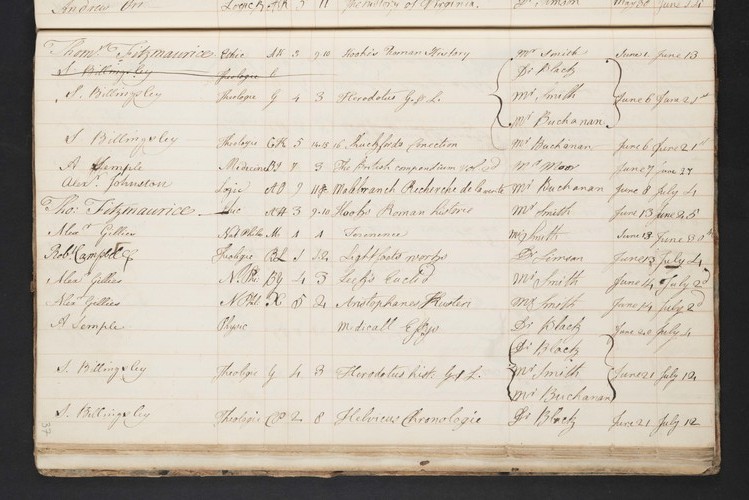 Andrew Orr French AR 5 11 History of Virginia. Dr Simson June
Thom. Fitzmaurice Ethic AR 3 9-10 Hooks Roman History Mr Smith June 1 June 13
S Billingsley Theologie
Dr Black
S. Billingsley Theologie G 4 3 Herodotus G & L. Mr Smith June 6 June 21st
Mr Buchanan
S Billingsley Theologie CR 5 14-15 16 Shuckfords Conection Mr Buchanan June 6 June 21st
A Semple Medicine BJ 7 3 The British compendium vol 2d Mr Moor June 7 June 27
Alexr. Johnston Logic AD 9 Malbranch Recherche de la verite Mr Buchanan June 8 July 4
Tho: Fitzmaurice AR 3 9-10 Hooks Roman historie Mr Smith June 13 June 25
Alexr Gillies Nat Philo M. 4 4 Terrence Mr Smith June 13 June 30th
Robt Campbell Theologie BL 1 1.2 Lightfoots works Dr Simson June 13 July 4
Alexr Gillies N. Phi BG 4 3 Euclid Mr Smith June 14 July 2d
Alexr Gillies N. Phil X 5 2 Aristophanes Kusteri Mr Smith June 14 July 2d
A Semple Physic Medicall Essays Dr Black June 20 July 4
Dr Black
S. Billingsley Theologie G 4 3 Herodotus hist. G & L. Mr Smith June 21 July 12
Mr Buchanan
S. Billingsley Theologie CP 2 8 Helvicus Chronologie Dr Black June 21 July 12
37